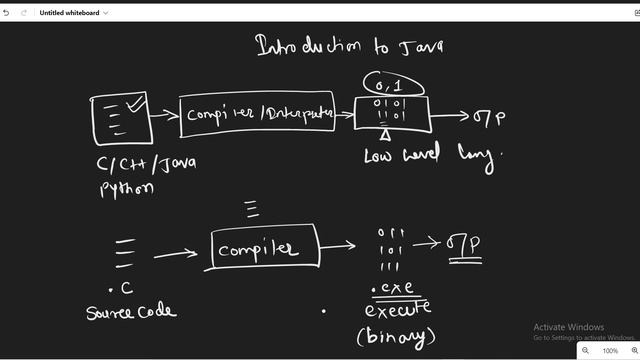 Untitled whiteboard
Introduction to Java
0,1
Compiler/Interpreter
0101
1101
O/P
C/C++/Java
Python
Low Level Lang.
Compiler
011
101
111
O/P
.C
Source Code
.exe
execute
(binary)
Activate Windows
Go to Settings to activate Windows.
100%